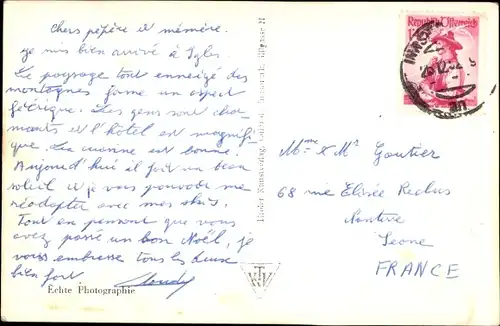 chers pépère et mémère.
je suis bien arrivé à Igls.
Le paysage tout enneigé des
montagnes forme un aspect
féérique. Les gens sont char-
mants et l'hôtel est magnifi-
que. La cuisine est bonne.
Aujourd'hui il fait un beau
soleil et je vais pouvoir me
réadapter avec mes skis.
Tout en pensant que vous
avez passé un bon Noël, je
vous embrasse tous les deux
bien fort Claudy
Echte Photographie
Tiroler Kunstverlag
Republik Österreich
Mme & Mr Gautier
68 rue Elisée Reclus
Nanterre
Seine
FRANCE